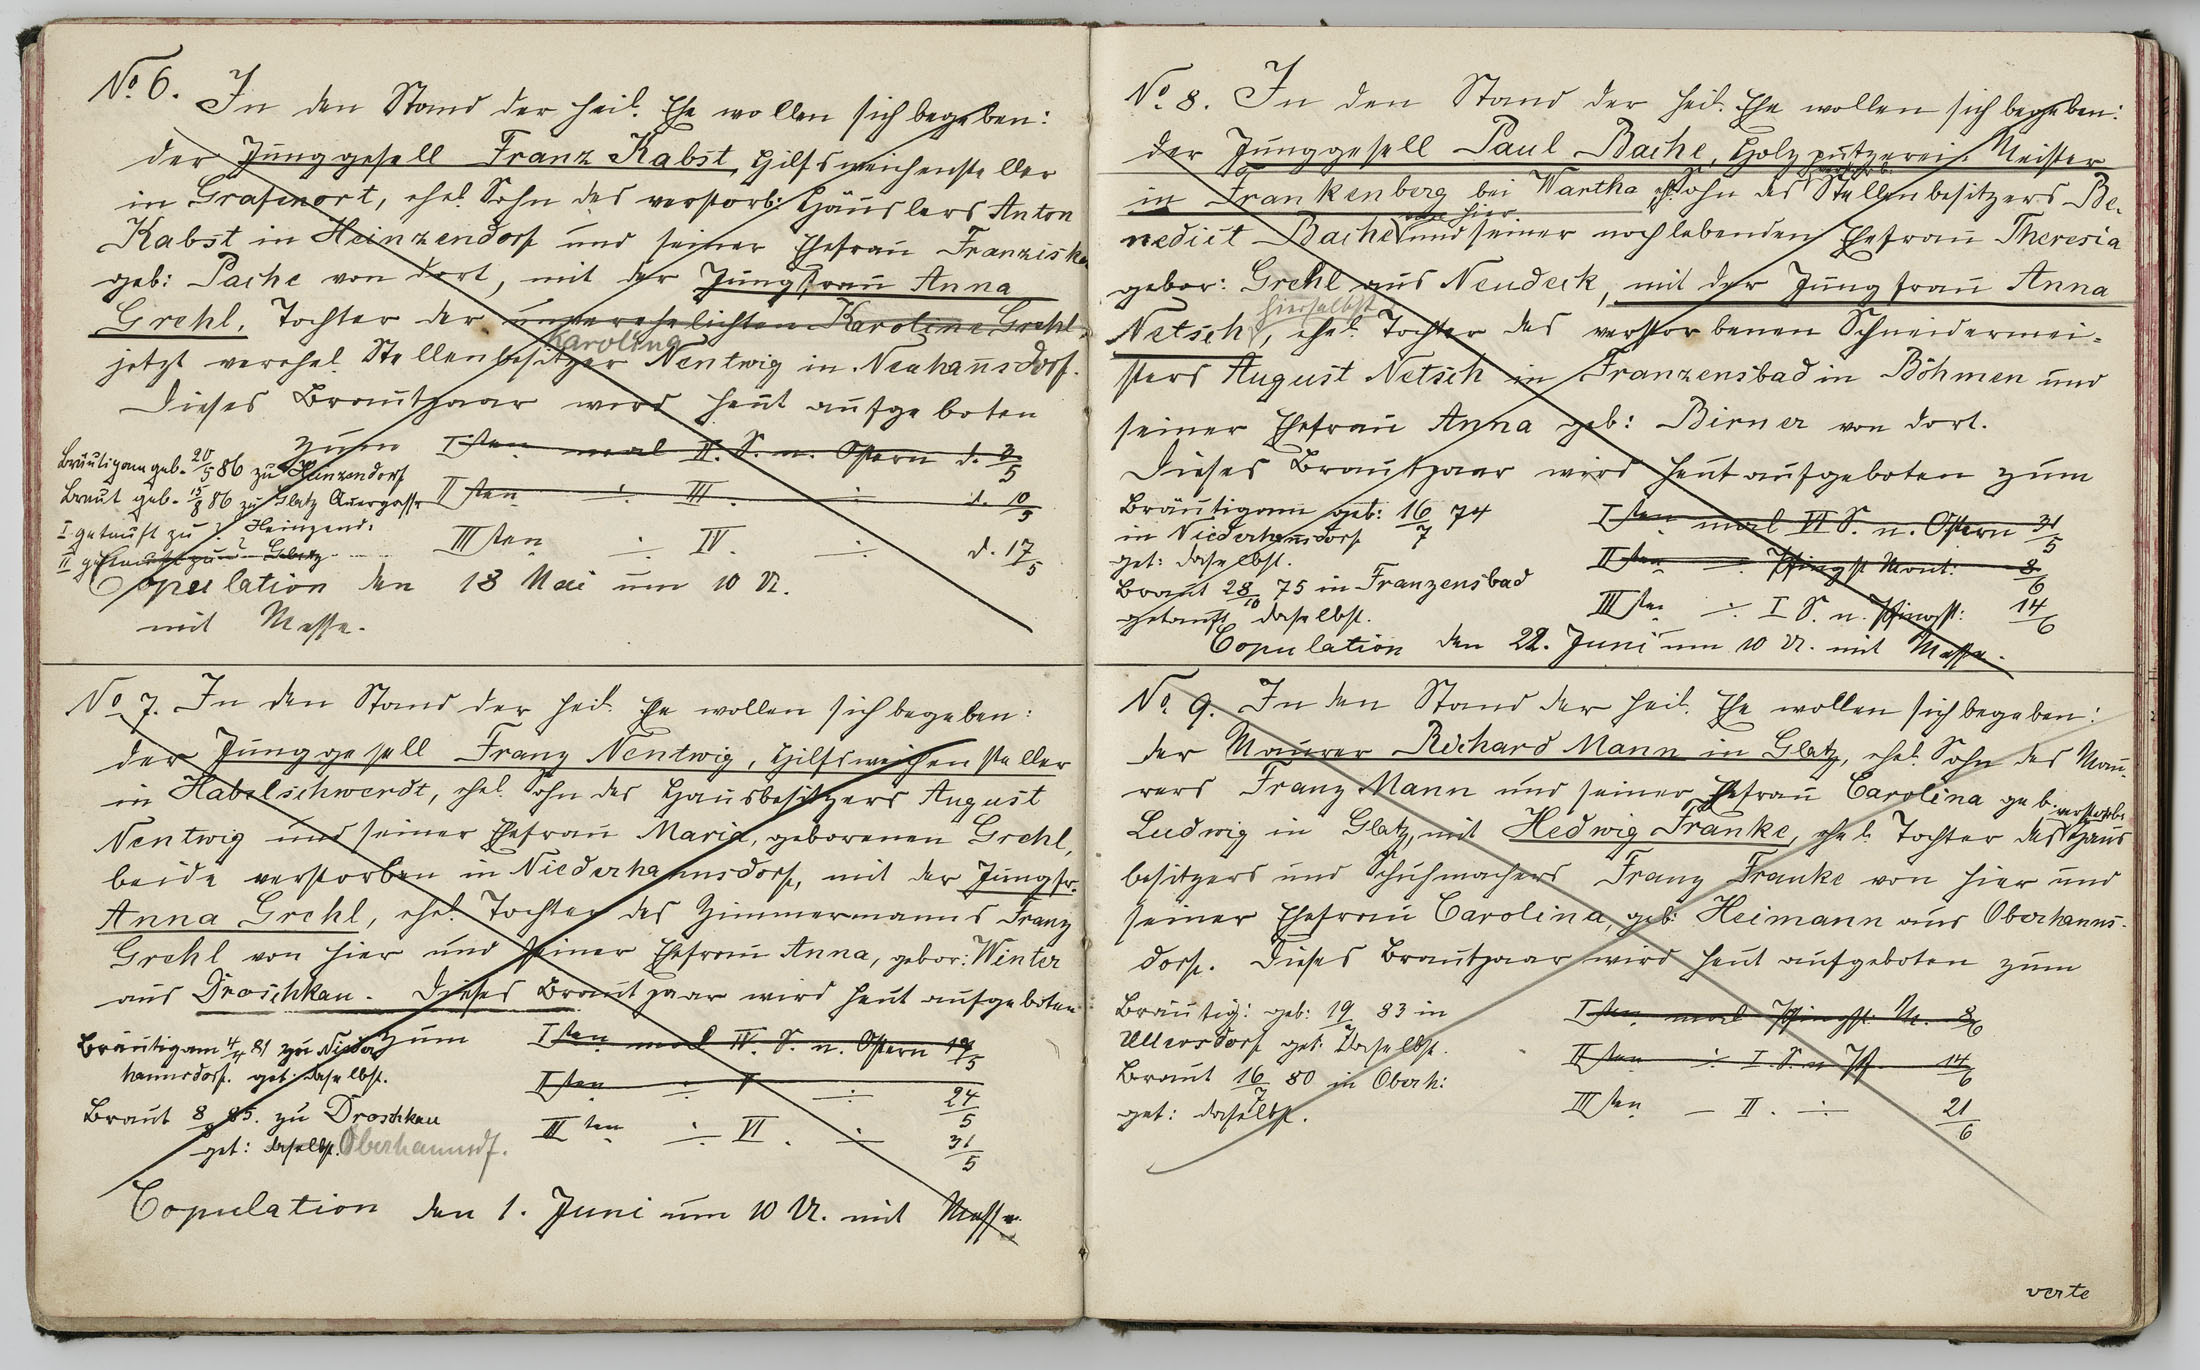 No 6. In den Stand der heil. Ehe wollen sich begeben:
der Junggesell Franz Kabst, Hilfsweichensteller
in Grafenort, ehel. Sohn des verstorb: Häuslers Anton
Kabst in Heinzendorf und seiner Ehefrau Franziska
geb: Pache von dort, mit der Jungfrau Anna
Grehl, Tochter der unverehelichten Karoline Grehl,
Karolina
jetzt verehel. Stellenbesitzer Nentwig in Neuhannsdorf.
Dieses Brautpaar wird heut aufgeboten
zum Isten mal II. S. n. Ostern d. 3/5
Bräutigam geb. 20/5 86 zu Heinzendorf
Braut geb. 15/8 86 zu Glatz Quergasse
IIsten ÷ III. ÷ d. 10/5
I getauft zu ? Heinzend.
IIIsten ÷ IV. ÷ d. 17/5
II getauft zu ?
Copulation den 18 Mai um 10 U.
mit Messe.
No 7. In den Stand der heil. Ehe wollen sich begeben:
der Junggesell Franz Nentwig, Hilfsweichensteller
in Habelschwerdt, ehel. Sohn des Hausbesitzers August
Nentwig und seiner Ehefrau Maria, geborenen Grehl,
beide verstorben in Niederhannsdorf, mit der Jungfr.
Anna Grehl, ehel. Tochter des Zimmermanns Franz
Grehl von hier und seiner Ehefrau Anna, gebor: Winter
aus Droschkau. Dieses Brautpaar wird heut aufgeboten
zum Isten mal IV. S. n. Ostern 17/5
Bräutigam 4/4 81 zu Nieder
hannsdorf. get: daselbst.
IIsten ÷ V ÷ 24/5
Braut 8/9 85. zu Droschkau
IIIten ÷ VI. ÷ 31/5
get: daselbst. Oberhannsdf.
Copulation den 1. Juni um 10 U. mit Messe.
No. 8. In den Stand der heil. Ehe wollen sich begeben:
der Junggesell Paul Bache, Holzputzerei. Meister
verstorb.
in Frankenberg bei Wartha, ehl. Sohn des Stellenbesitzers Be-
von hier
nedict Bache und seiner noch lebenden Ehefrau Theresia
gebor: Grehl aus Neudeck, mit der Jungfrau Anna
hierselbst
Netsch, ehel. Tochter des verstorbenen Schneidermei-
sters August Netsch in Franzensbad in Böhmen und
seiner Ehefrau Anna geb: Birner von dort.
Dieses Brautpaar wird heut aufgeboten zum
Bräutigam geb: 16/7 74
Isten mal VI S. n. Ostern 31/5
in Niederhannsdorf
get: daselbst.
IIsten ÷ Pfingst Mont: 8/6
Braut 28/10 75 in Franzensbad
IIIsten ÷ I S. n. Pfingst: 14/6
getauft daselbst.
Copulation den 22. Juni um 10 U. mit Messe.
No. 9. In den Stand der heil. Ehe wollen sich begeben:
der Maurer Richard Mann in Glatz, ehel. Sohn des Mau-
rers Franz Mann und seiner Ehefrau Carolina geb.
verstorb.
Ludwig in Glatz, mit Hedwig Franke, ehel. Tochter des Haus
besitzers und Schuhmachers Franz Franke von hier und
seiner Ehefrau Carolina, geb: Heimann aus Oberhanns-
dorf. Dieses Brautpaar wird heut aufgeboten zum
Bräutig: geb: 19/2 83 in
Isten mal Pfingst. M. 8/6
Ullersdorf get: daselbst.
IIsten ÷ I S. n. Pf. 14/6
Braut 16/7 80 in Oberh:
IIIsten — II. ÷ 21/6
get: daselbst.
verte